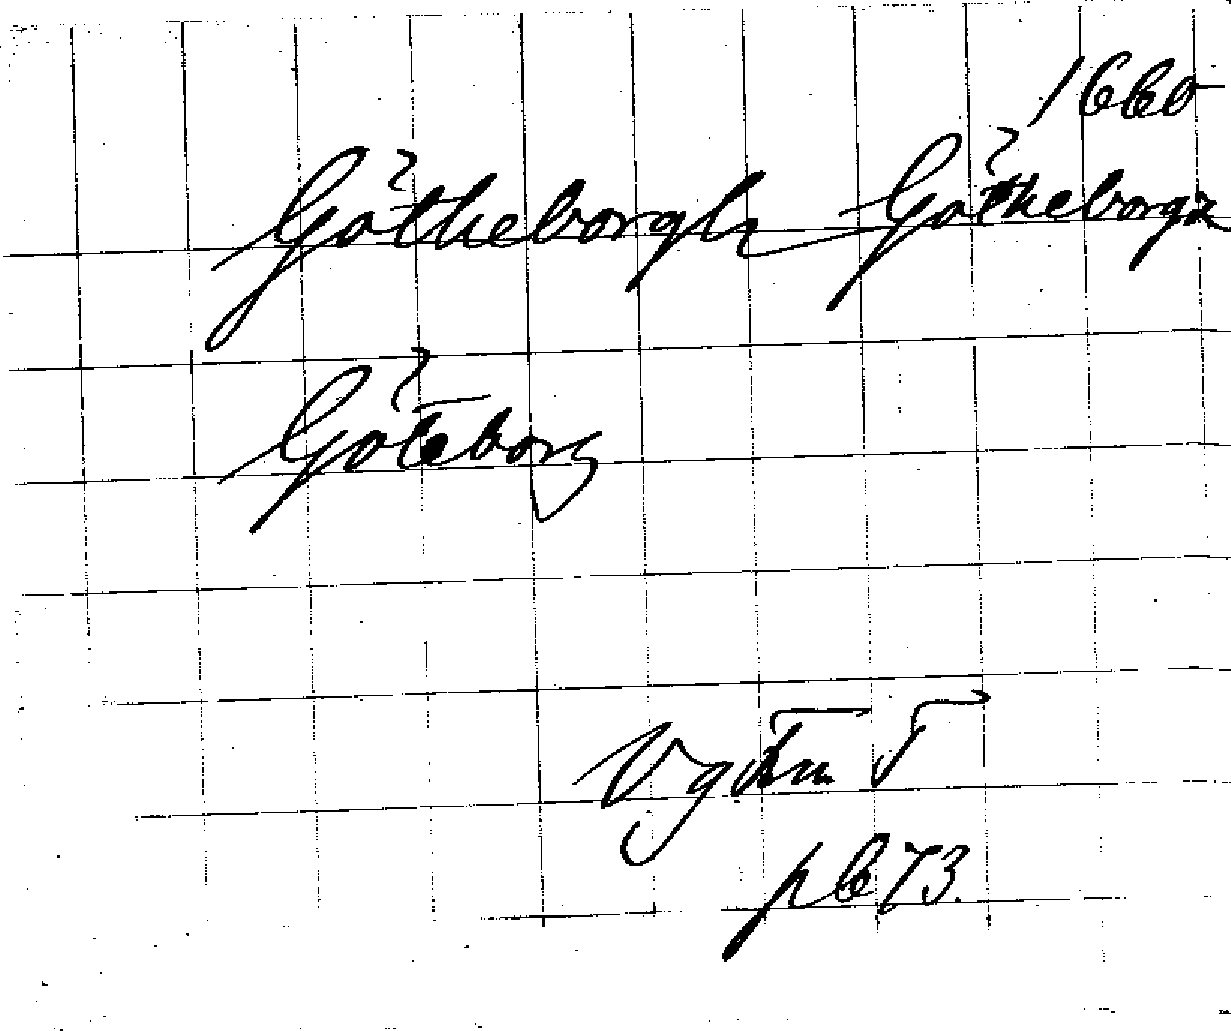 1660
Götheborgh Götheborgz
Göteborg
p 673.